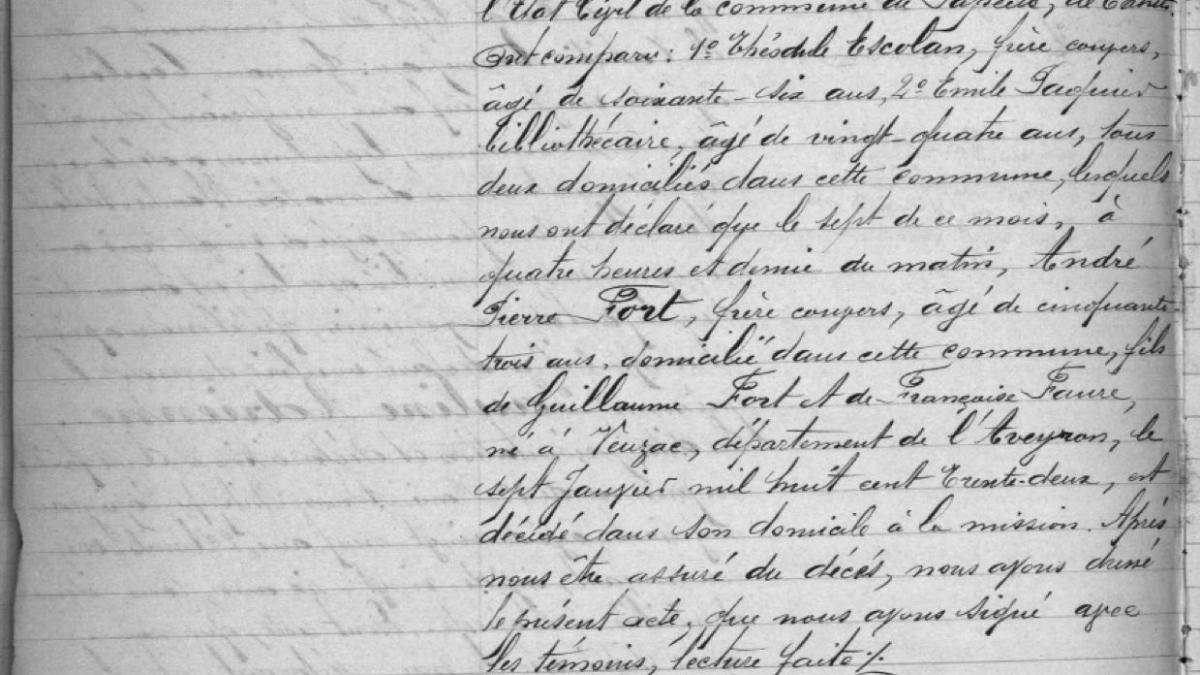 l'Etat Civil de la commune de Papeete, de Tahiti.
Ont comparu: 1º Théodule Escolan, frère convers,
âgé de soixante-six ans, 2º Emile Jaquier
bibliothécaire, âgé de vingt-quatre ans, tous
deux domiciliés dans cette commune, lesquels
nous ont déclaré que le sept de ce mois, à
quatre heures et demie du matin, André
Pierre Fort, frère convers, âgé de cinquante
trois ans, domicilié dans cette commune, fils
de Guillaume Fort et de Françoise Faure,
né à Veuzac, département de l'Aveyron, le
sept Janvier mil huit cent trente-deux, est
décédé dans son domicile à la mission. Après
nous être assuré du décès, nous avons dressé
le présent acte, que nous avons signé avec
les témoins, lecture faite ./.